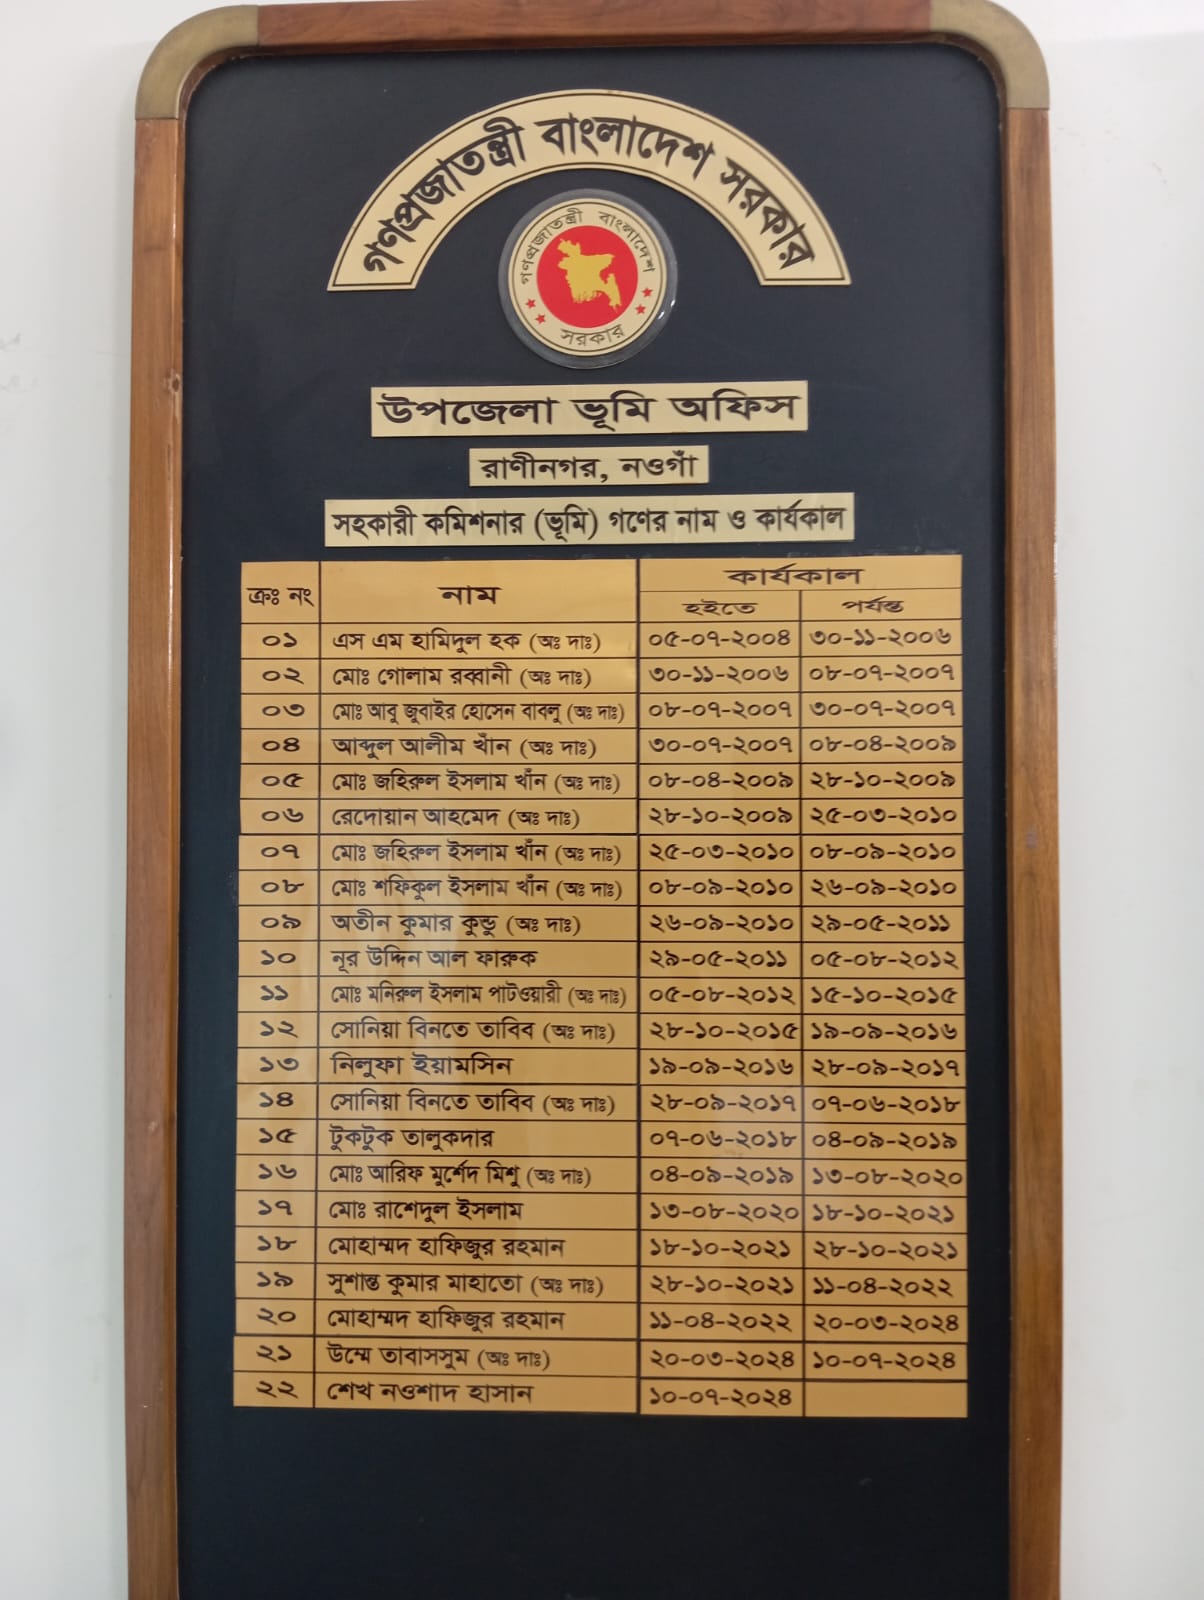 গণপ্রজাতন্ত্রী বাংলাদেশ সরকার
গণপ্রজাতন্ত্রী বাংলাদেশ
সরকার
উপজেলা ভূমি অফিস
রাণীনগর, নওগাঁ
সহকারী কমিশনার (ভূমি) গণের নাম ও কার্যকাল
ক্রঃ নং নাম কার্যকাল
হইতে পর্যন্ত
০১ এস এম হামিদুল হক (অঃ দাঃ) ০৫-০৭-২০০৪ ৩০-১১-২০০৬
০২ মোঃ গোলাম রব্বানী (অঃ দাঃ) ৩০-১১-২০০৬ ০৮-০৭-২০০৭
০৩ মোঃ আবু জুবাইর হোসেন বাবলু (অঃ দাঃ) ০৮-০৭-২০০৭ ৩০-০৭-২০০৭
০৪ আব্দুল আলীম খাঁন (অঃ দাঃ) ৩০-০৭-২০০৭ ০৮-০৪-২০০৯
০৫ মোঃ জহিরুল ইসলাম খাঁন (অঃ দাঃ) ০৮-০৪-২০০৯ ২৮-১০-২০০৯
০৬ রেদোয়ান আহমেদ (অঃ দাঃ) ২৮-১০-২০০৯ ২৫-০৩-২০১০
০৭ মোঃ জহিরুল ইসলাম খাঁন (অঃ দাঃ) ২৫-০৩-২০১০ ০৮-০৯-২০১০
০৮ মোঃ শফিকুল ইসলাম খাঁন (অঃ দাঃ) ০৮-০৯-২০১০ ২৬-০৯-২০১০
০৯ অতীন কুমার কুন্ডু (অঃ দাঃ) ২৬-০৯-২০১০ ২৯-০৫-২০১১
১০ নূর উদ্দিন আল ফারুক ২৯-০৫-২০১১ ০৫-০৮-২০১২
১১ মোঃ মনিরুল ইসলাম পাটওয়ারী (অঃ দাঃ) ০৫-০৮-২০১২ ১৫-১০-২০১৫
১২ সোনিয়া বিনতে তাবিব (অঃ দাঃ) ২৮-১০-২০১৫ ১৯-০৯-২০১৬
১৩ নিলুফা ইয়ামসিন ১৯-০৯-২০১৬ ২৮-০৯-২০১৭
১৪ সোনিয়া বিনতে তাবিব (অঃ দাঃ) ২৮-০৯-২০১৭ ০৭-০৬-২০১৮
১৫ টুকটুক তালুকদার ০৭-০৬-২০১৮ ০৪-০৯-২০১৯
১৬ মোঃ আরিফ মুর্শেদ মিশু (অঃ দাঃ) ০৪-০৯-২০১৯ ১৩-০৮-২০২০
১৭ মোঃ রাশেদুল ইসলাম ১৩-০৮-২০২০ ১৮-১০-২০২১
১৮ মোহাম্মদ হাফিজুর রহমান ১৮-১০-২০২১ ২৮-১০-২০২১
১৯ সুশান্ত কুমার মাহাতো (অঃ দাঃ) ২৮-১০-২০২১ ১১-০৪-২০২২
২০ মোহাম্মদ হাফিজুর রহমান ১১-০৪-২০২২ ২০-০৩-২০২৪
২১ উম্মে তাবাসসুম (অঃ দাঃ) ২০-০৩-২০২৪ ১০-০৭-২০২৪
২২ শেখ নওশাদ হাসান ১০-০৭-২০২৪